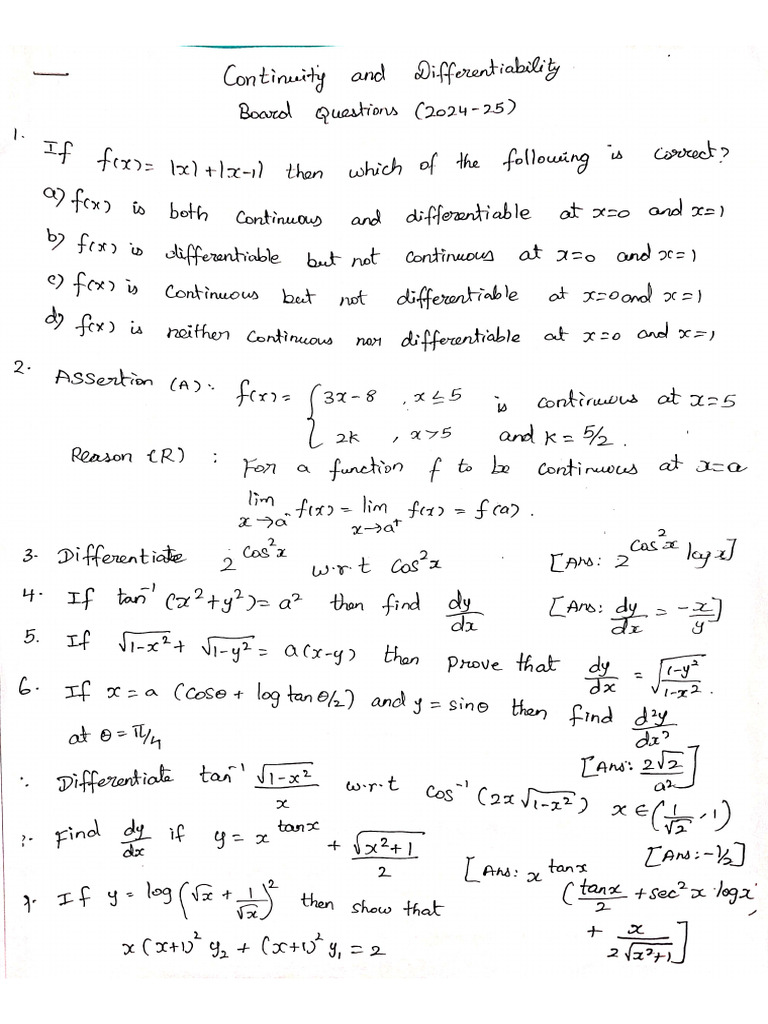 Continuity and Differentiability
Board Questions (2024-25)
1. If f(x) = |x| + |x-1| then which of the following is correct?
a) f(x) is both continuous and differentiable at x=0 and x=1
b) f(x) is differentiable but not continuous at x=0 and x=1
c) f(x) is continuous but not differentiable at x=0 and x=1
d) f(x) is neither continuous nor differentiable at x=0 and x=1
2. Assertion (A): f(x) = { 3x-8 , x ≤ 5 is continuous at x=5
2k , x>5 and k = 5/2.
Reason (R) : For a function f to be continuous at x=a
lim x→a⁻ f(x) = lim x→a⁺ f(x) = f(a).
3. Differentiate 2^cos²x w.r.t cos²x [Ans: 2^cos²x log x]
4. If tan⁻¹ (x²+y²) = a² then find dy/dx [Ans: dy/dx = -x/y]
5. If √1-x² + √1-y² = a(x-y) then prove that dy/dx = √(1-y²/1-x²).
6. If x = a (cosθ + log tan θ/2) and y = sinθ then find d²y/dx²
at θ = π/4 [Ans: 2√2/a²]
: Differentiate tan⁻¹ √1-x²/x w.r.t cos⁻¹ (2x√1-x²) x ∈ (1/√2, 1)
[Ans: -1/2]
Find dy/dx if y = x^tanx + √x²+1/2 [Ans: x^tanx (tanx/2 + sec²x·logx,
+ x/2√x²+1]
If y = log (√x + 1/√x)² then show that
x(x+1)² y₂ + (x+1)² y₁ = 2